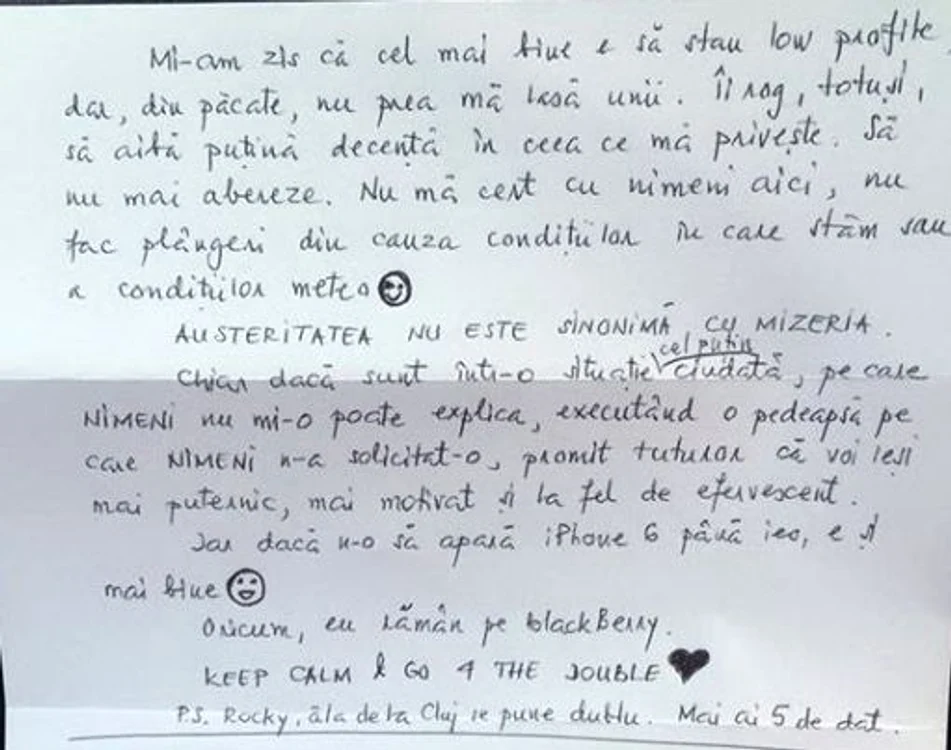 Mi-am zis că cel mai bine e să stau low profile
dar, din păcate, nu prea mă lasă unii. Îi rog, totuși,
să aibă puțină decență în ceea ce mă privește. Să
nu mai abereze. Nu mă cert cu nimeni aici, nu
fac plângeri din cauza condițiilor în care stăm sau
a condițiilor meteo ☺
AUSTERITATEA NU ESTE SINONIMĂ CU MIZERIA.
cel puțin
Chiar dacă sunt într-o situație ciudată, pe care
NIMENI nu mi-o poate explica, executând o pedeapsă pe
care NIMENI n-a solicitat-o, promit tuturor că voi ieși
mai puternic, mai motivat și la fel de efervescent.
Iar dacă n-o să apară iPhone 6 până ies, e și
mai bine 😃
Oricum, eu rămân pe blackBerry.
KEEP CALM & GO 4 THE DOUBLE ♥
P.S. Rocky, ăla de la Cluj se pune dublu. Mai ai 5 de dat.